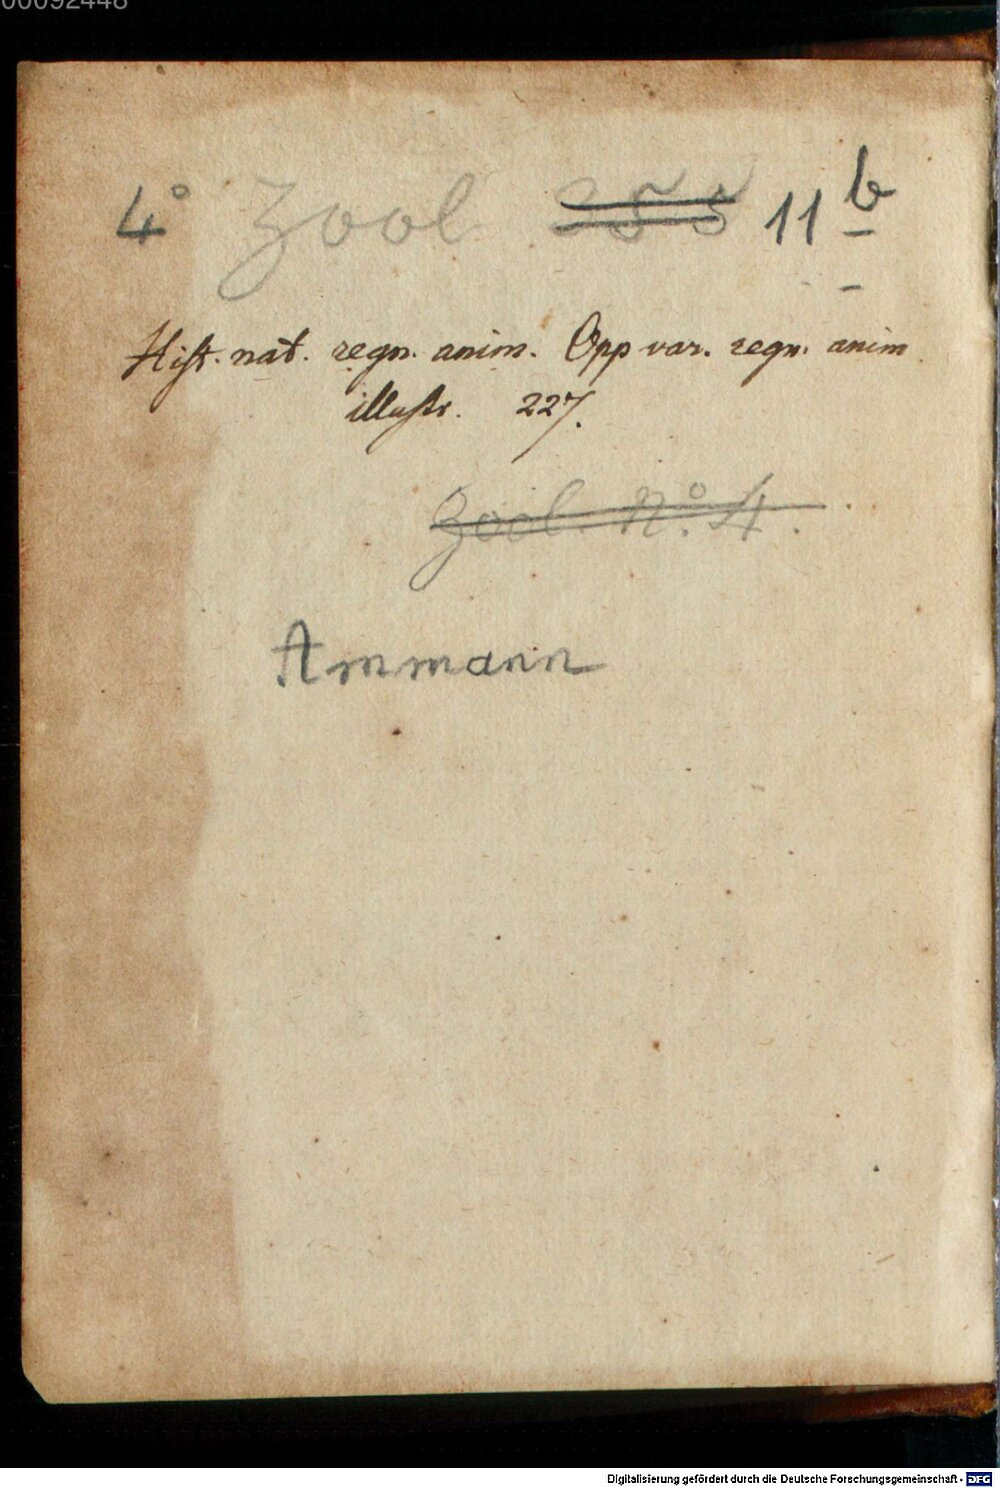 00092448
4° Zool 11 b
Hist. nat. regn. anim. Opp var. regn. anim.
illustr. 227.
Zool. No. 4.
Ammann
Digitalisierung gefördert durch die Deutsche Forschungsgemeinschaft - DFG